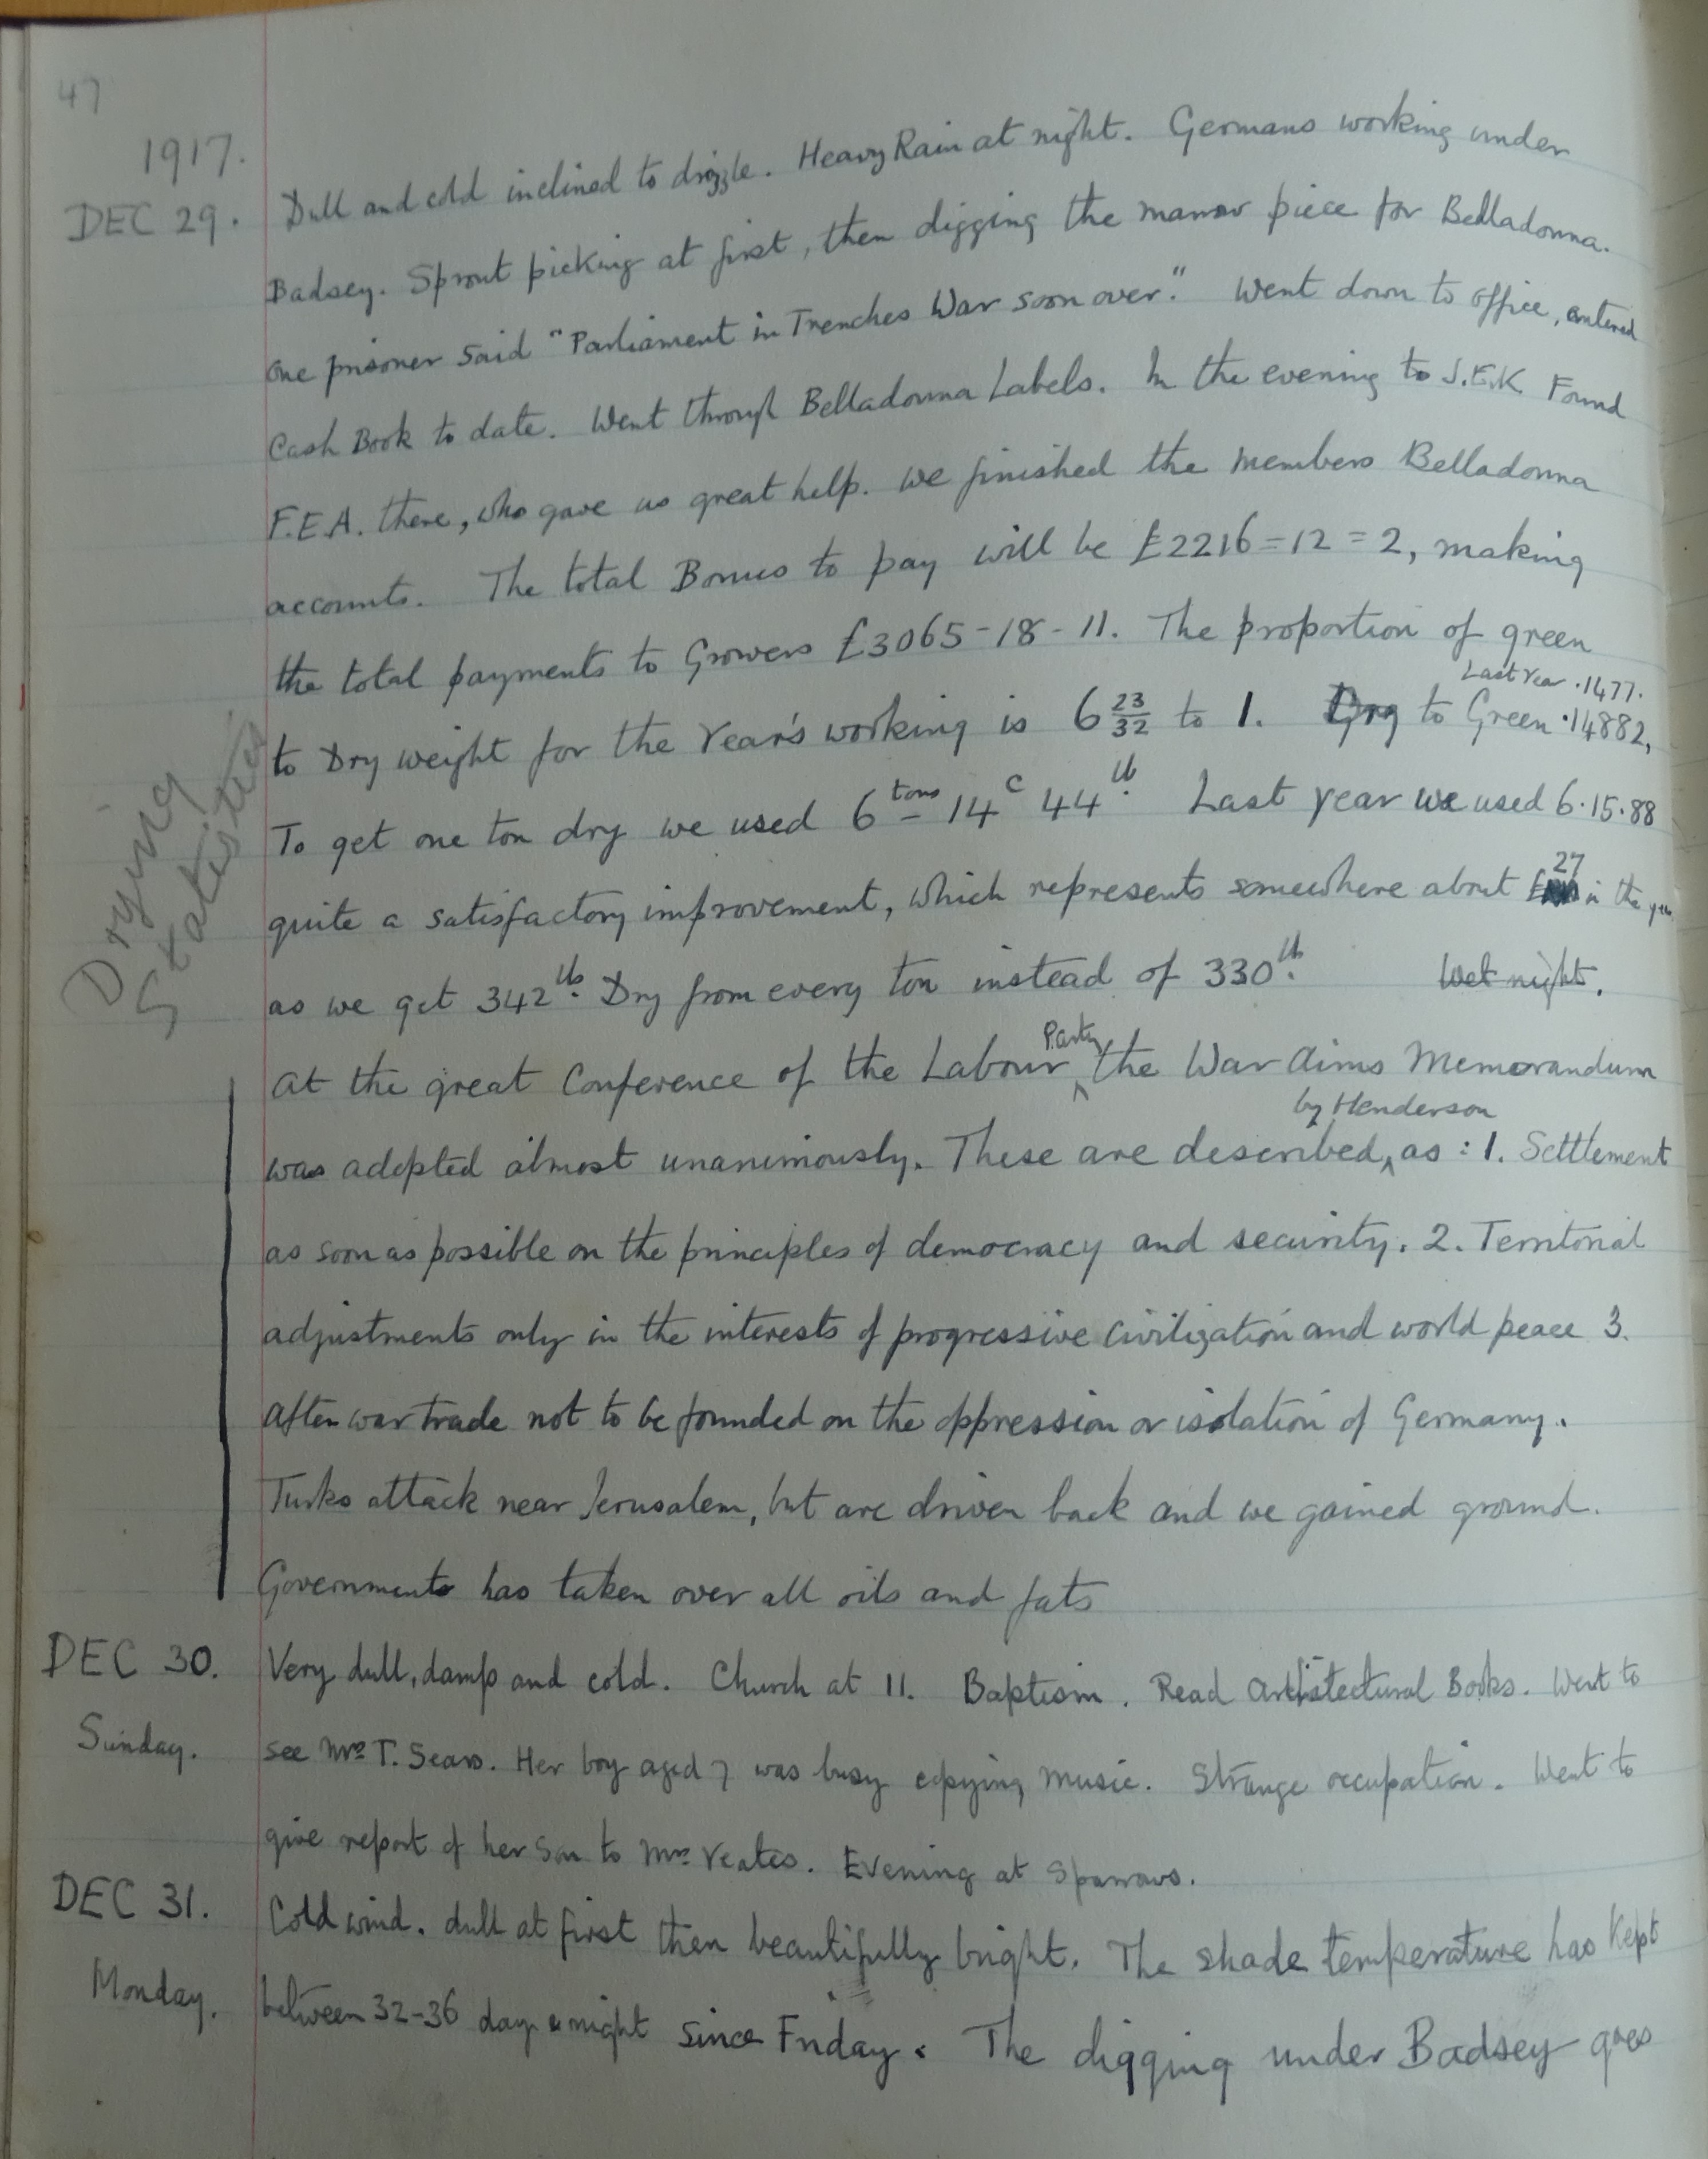 47
1917.
DEC 29. Dull and cold inclined to drizzle. Heavy Rain at night. Germans working under
Badsey. Sprout picking at first, then digging the marrow piece for Belladonna.
One prisoner said "Parliament in Trenches War soon over." Went down to office, entered
Cash Book to date. Went through Belladonna Labels. In the evening to J.E.K. Found
F.E.A. there, who gave us great help. We finished the members Belladonna
accounts. The total Bonus to pay will be £2216=12=2, making
the total payments to Growers £3065-18-11. The proportion of green
Last Year .1477.
to Dry weight for the Year's working is 6 23/32 to 1. Dry to Green .14882,
To get one ton dry we used 6 tons - 14 c 44 lb. Last year we used 6.15.88
quite a satisfactory improvement, which represents somewhere about £27 in the year
as we get 342 lb. Dry from every ton instead of 330 lb. Wet night.
Drying
Statistics
At the great Conference of the Labour Party the War Aims Memorandum
by Henderson
was adopted almost unanimously. These are described, as : 1. Settlement
as soon as possible on the principles of democracy and security. 2. Territorial
adjustments only in the interests of progressive civilization and world peace 3.
After war trade not to be founded on the oppression or isolation of Germany.
Turks attack near Jerusalem, but are driven back and we gained ground.
Governments has taken over all oils and fats
DEC 30. Very dull, damp and cold. Church at 11. Baptism. Read Architectural Books. Went to
Sunday. see Mrs T. Sears. Her boy aged 7 was busy copying music. Strange occupation. Went to
give report of her son to Mrs Yeates. Evening at Sparrows.
DEC 31. Cold wind. dull at first then beautifully bright. The shade temperature has kept
Monday. between 32-36 day & night since Friday. The digging under Badsey goes